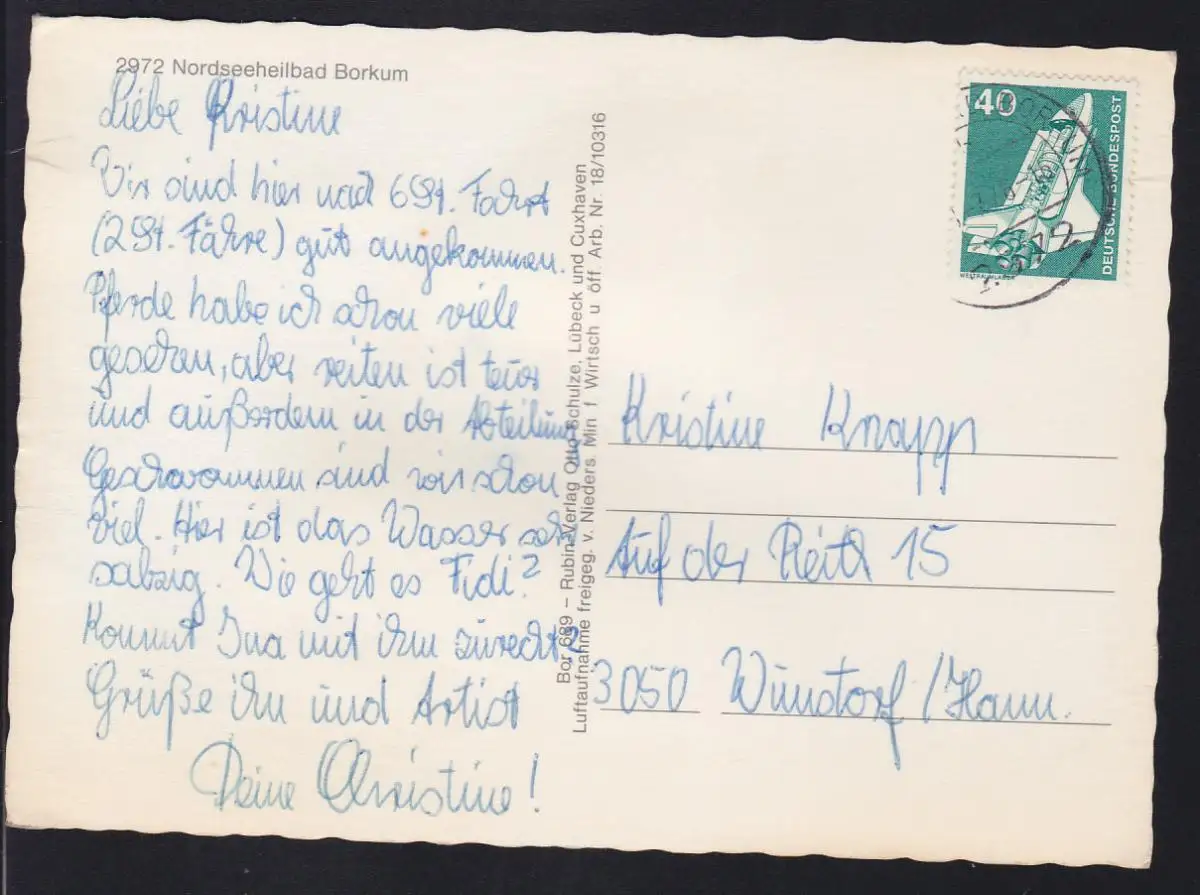 2972 Nordseeheilbad Borkum
Liebe Kristine
Wir sind hier nach 6 St. Fahrt
(2 St. Fähre) gut angekommen.
Pferde habe ich schon viele
gesehen, aber reiten ist teuer
und außerdem in der Abteilung
Geschwommen sind wir schon
viel. Hier ist das Wasser sehr
salzig. Wie geht es Fidi?
Kommt Ina mit ihm zurecht?
Grüße ihn und Artist
Deine Christine!
Bor 689 – Rubin-Verlag Otto Schulze, Lübeck und Cuxhaven
Luftaufnahme freigeg. v. Nieders. Min f Wirtsch u öff Arb. Nr. 18/10316
40
DEUTSCHE BUNDESPOST
2972
Kristine Knapp
Auf der Reith 15
3050 Wunstorf/Hann.